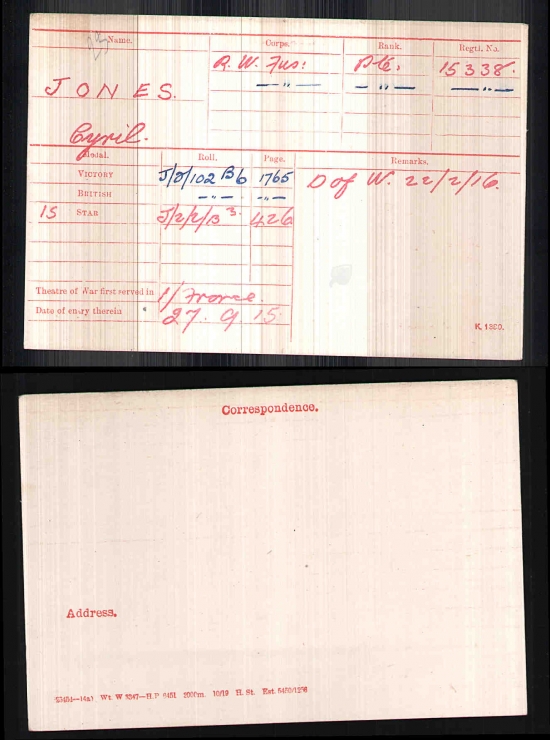 Name. Corps. Rank. Regtl. No.
R. W. Fus: Pte. 15338.
JONES. — " — — " — — " —
Cyril.
Medal. Roll. Page. Remarks.
VICTORY J/2/102 B6 1765 D of W. 22/2/16.
BRITISH — " — — " —
15 STAR J/2/2/B3. 426
Theatre of War first served in 1/ France.
Date of entry therein 27. 9. 15.
K. 1380.
Correspondence.
Address.
10/19 H. St.